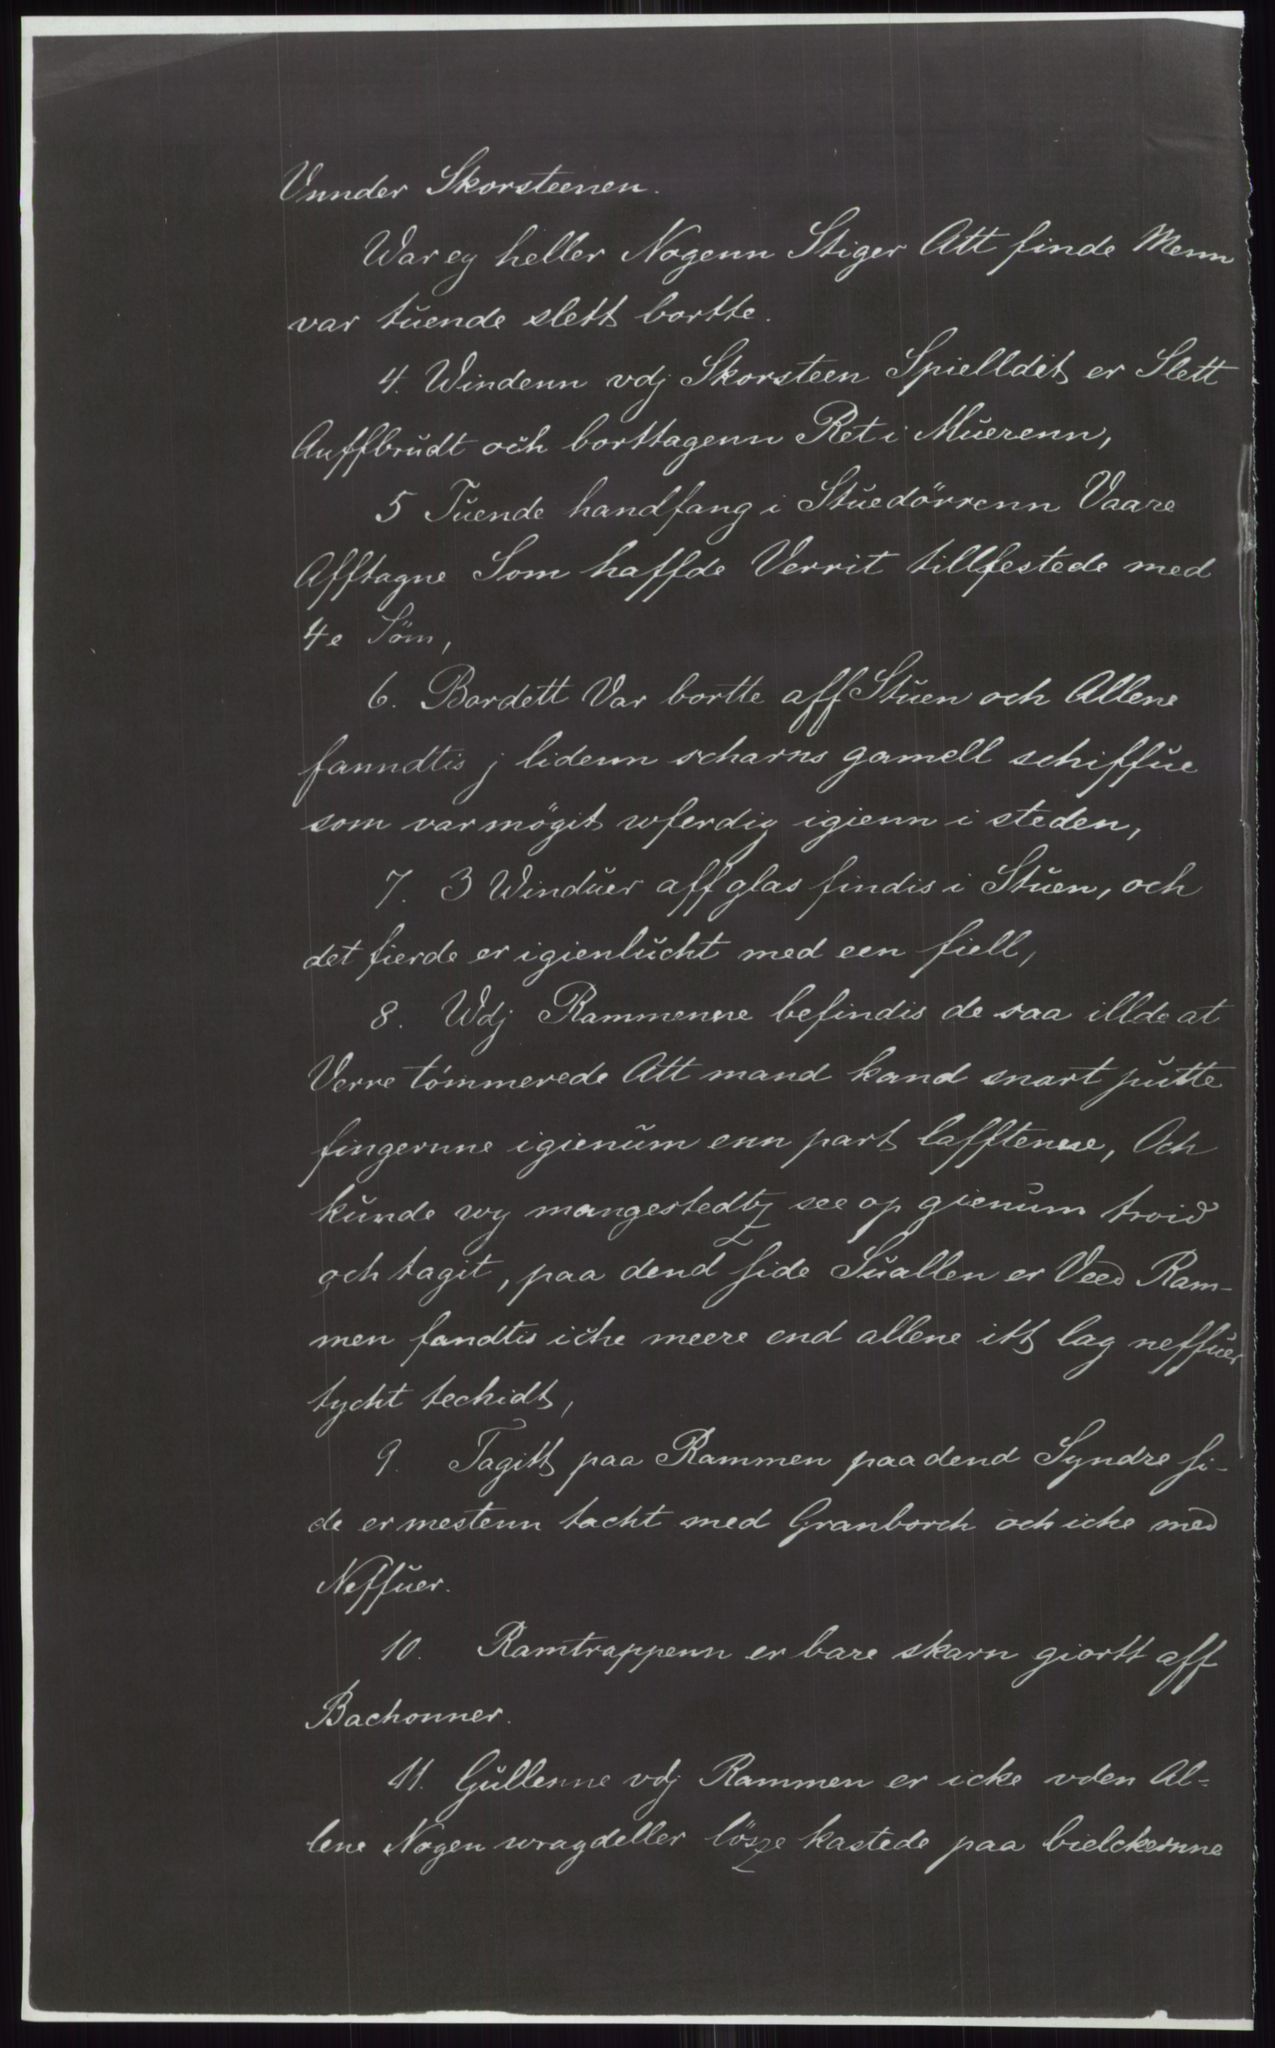 Vnnder Skorsteenen.
War ey heller Nogenn Stiger Att finde Menn
var tuende slett bortte.
4. Windenn vdj Skorsteen Spielldit er Slett
Auffbrudt och borttagenn Ret i Muerenn,
5 Tuende handfang i Stuedörrenn Vaare
Afftagne Som haffde Verrit tillfestede med
4e Söm,
6. Bordett Var bortte aff Stuen och Allene
fanndtis j lidenn scharns gamell schiffue
som var mögit wferdig igienn i steden,
7. 3 Winduer aff glas findis i Stuen, och
det fierde er igienlucht med een fiell,
8. Wdj Rammenne befindis de saa illde at
Verre tömmerede Att mand kand snart putte
fingernne igienum enn part lafftenne, Och
kunde wy mangestedtz see op gienum troid
och tagit, paa dend side Suallen er Veed Ram-
men fandtis iche meere end allene itt lag neffuer
tycht techidt,
9. Tagitt paa Rammen paa dend Syndre si-
de er mestenn tacht med Granborch och icke med
Neffuer.
10. Ramtrappenn er bare skarn giortt aff
Bachonner.
11. Gullenne vdj Rammen er icke vden Al=
lene Nogen wragdeller lösze kastede paa bielckernne